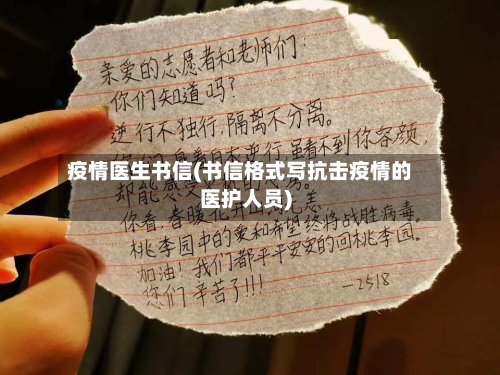 亲爱的志愿者和老师们：
你们知道吗？
逆行不独行，隔离不分离。
逆行，虽看不到你容颜，
疫情医生书信(书信格式写抗击疫情的
医护人员)
却能感受
你看，春暖花开
桃李园中的爱和希望终将战胜病毒。
加油！我们都平平安安的回桃李园。
您们辛苦了!!!
—2518